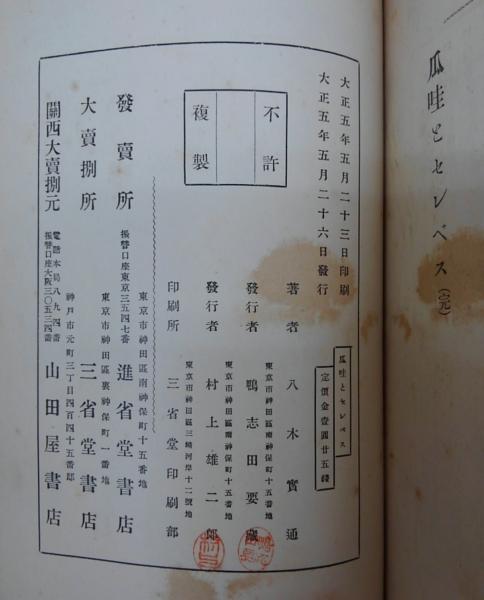 瓜哇とセレベス(完)
大正五年五月二十三日印刷
大正五年五月二十六日發行
瓜哇とセレベス
定價金壹圓廿五錢
不許
複製
著者 八木實通
東京市神田區南神保町十五番地
發行者 鴨志田要藏
東京市神田區南神保町十五番地
發行者 村上雄二郎
東京市神田區三崎河岸十二號地
印刷所 三省堂印刷部
東京市神田區南神保町十五番地
發賣所 進省堂書店
振替口座東京三五四七番
東京市神田區裏神保町一番地
大賣捌所 三省堂書店
神戸市元町三丁目四百四十五番邸
關西大賣捌元 山田屋書店
電話本局八九四番
振替口座大阪三〇五三四番